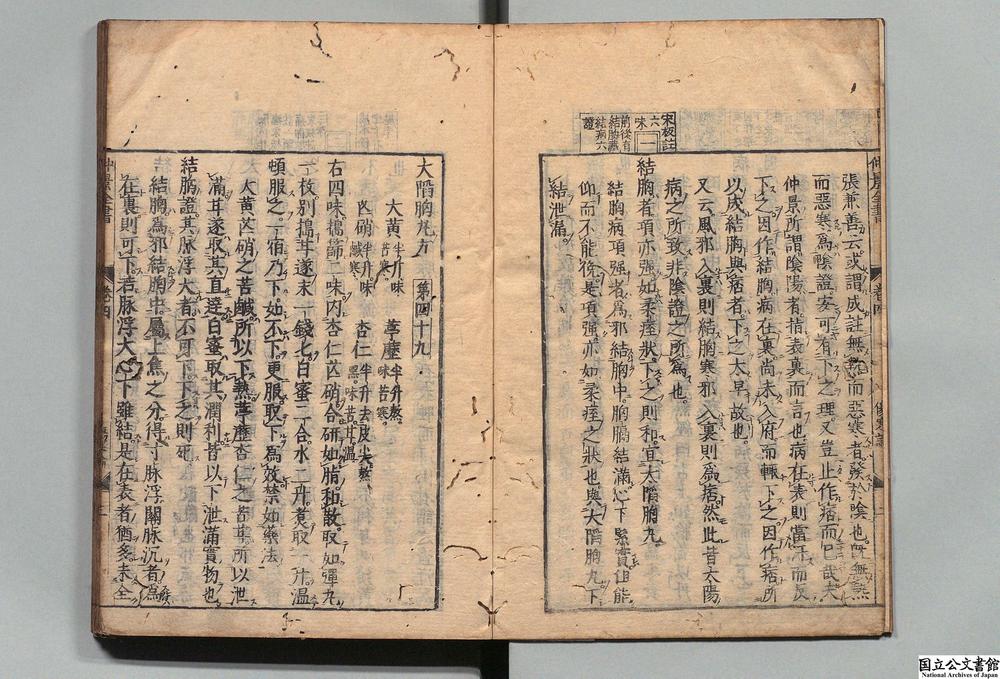 張兼善云或謂成註無熱而惡寒者發於陰也既無熱
而惡寒爲陰證安可有下之理又豈止作痞而已哉夫
仲景所謂陰陽者指表裏而言也病在表則當汗而反
下之因作結胸病在裏尚未入府而輒下之因作痞所
以成結胸與痞者下之太早故也
又云風邪入裏則結胸寒邪入裏則爲痞然此皆太陽
病之所致非陰證之所爲也
結胸者項亦强如柔痓狀下之則和宜大陷胸丸
結胸病項强者爲邪結胸中胸膈結滿心下緊實但能
仰而不能俛是項强亦如柔痓之狀也與大陷胸丸下
結泄滿
宋板註
六味
一
前後有
結胸藏
結病六
證
仲景全書
卷四
大陷胸丸方
第四十九
大黄半斤味苦寒
葶藶半升熬味苦寒
芒硝半升味鹹寒
杏仁半升去皮尖熬黑味苦甘温
右四味擣篩二味内杏仁芒硝合研如脂和散取如彈丸
一枚別擣甘遂末一錢匕白蜜二合水二升煮取一升温
頓服之一宿乃下如不下更服取下爲效禁如藥法
大黄芒硝之苦鹹所以下熱葶藶杏仁之苦甘所以泄
滿甘遂取其直達白蜜取其潤利皆以下泄滿實物也
結胸證其脉浮大者不可下下之則死
結胸爲邪結胸中屬上焦之分得寸脉浮關脉沉者爲
在裏則可下若脉浮大心下雖結是在表者猶多未全
仲景全書
卷四
国立公文書館
National Archives of Japan